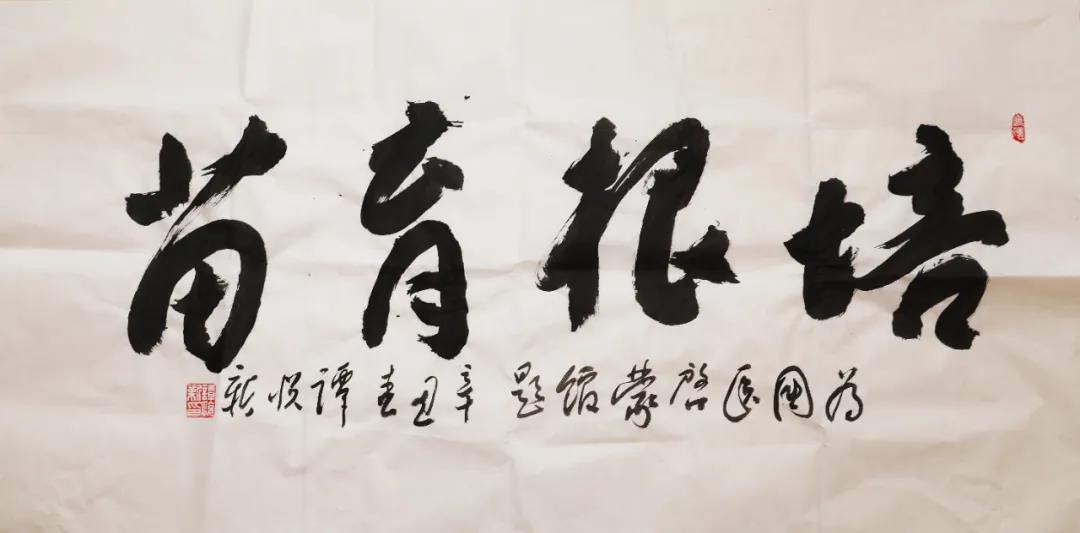 培根育苗
为国医启蒙馆题 辛丑春 谭悦新